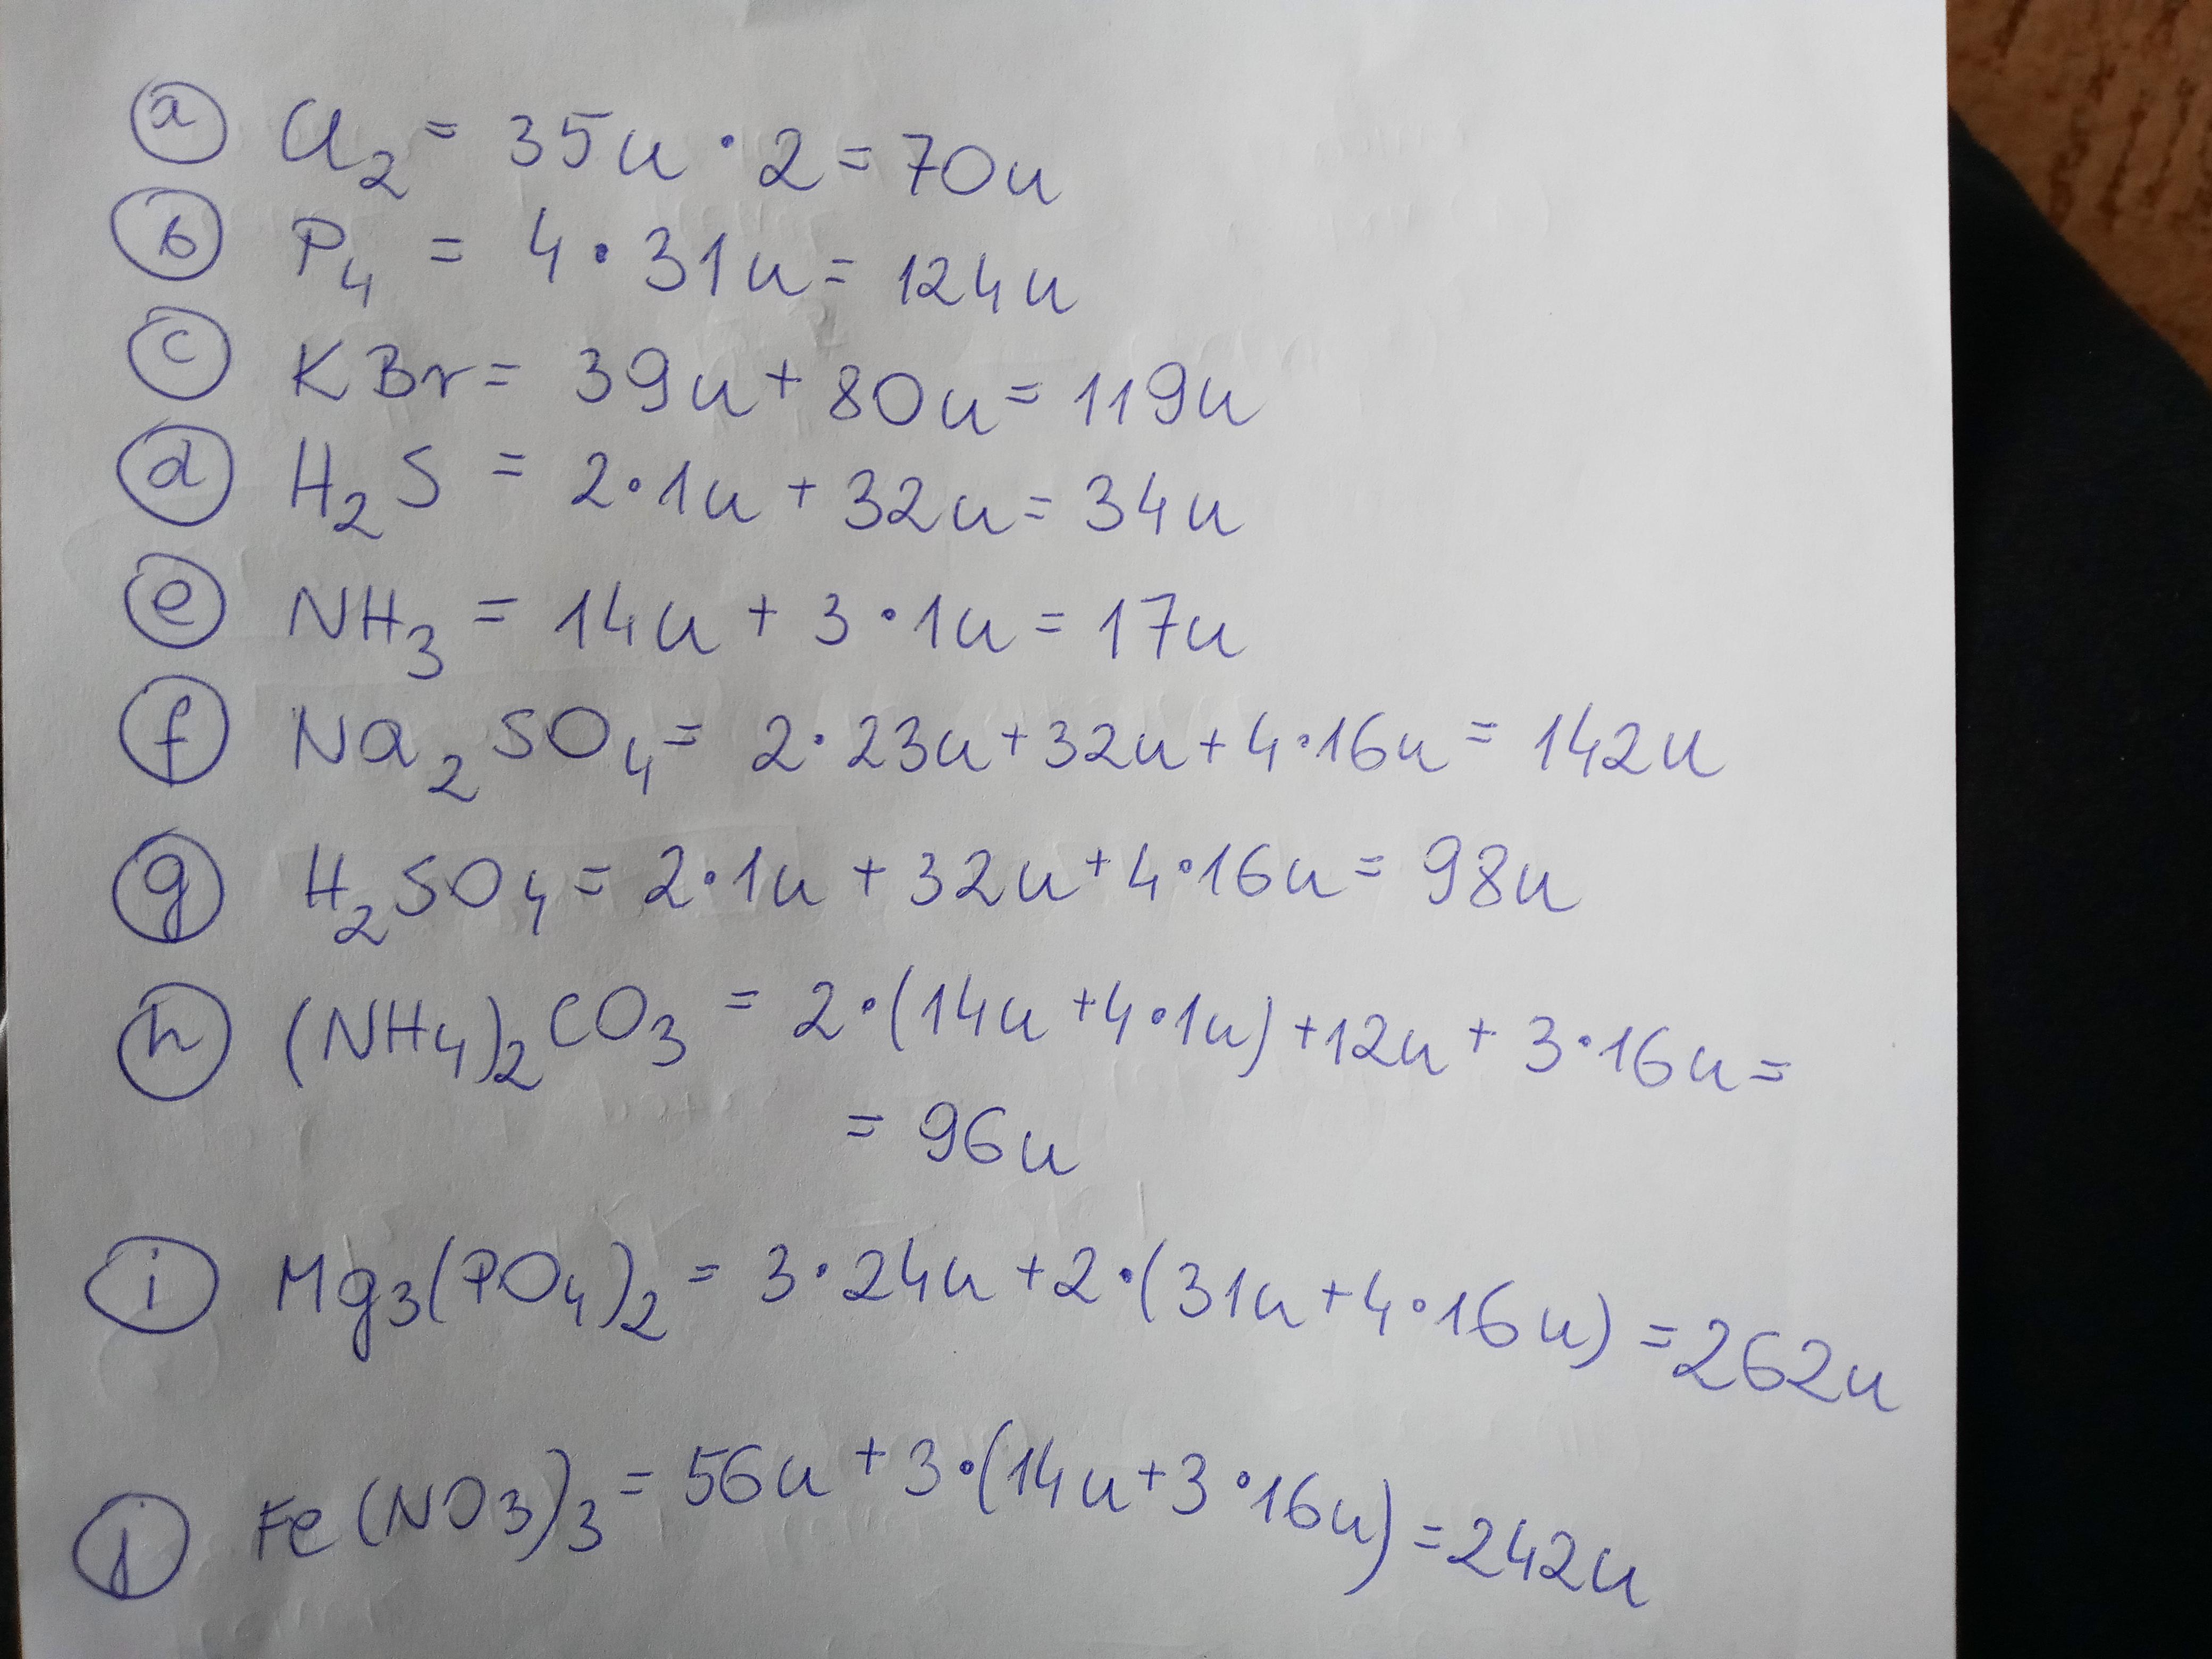 a Cl₂ = 35u · 2 = 70u
b P₄ = 4 · 31u = 124u
c KBr = 39u + 80u = 119u
d H₂S = 2 · 1u + 32u = 34u
e NH₃ = 14u + 3 · 1u = 17u
f Na₂SO₄ = 2 · 23u + 32u + 4 · 16u = 142u
g H₂SO₄ = 2 · 1u + 32u + 4 · 16u = 98u
h (NH₄)₂CO₃ = 2 · (14u + 4 · 1u) + 12u + 3 · 16u =
= 96u
i Mg₃(PO₄)₂ = 3 · 24u + 2 · (31u + 4 · 16u) = 262u
j Fe(NO₃)₃ = 56u + 3 · (14u + 3 · 16u) = 242u